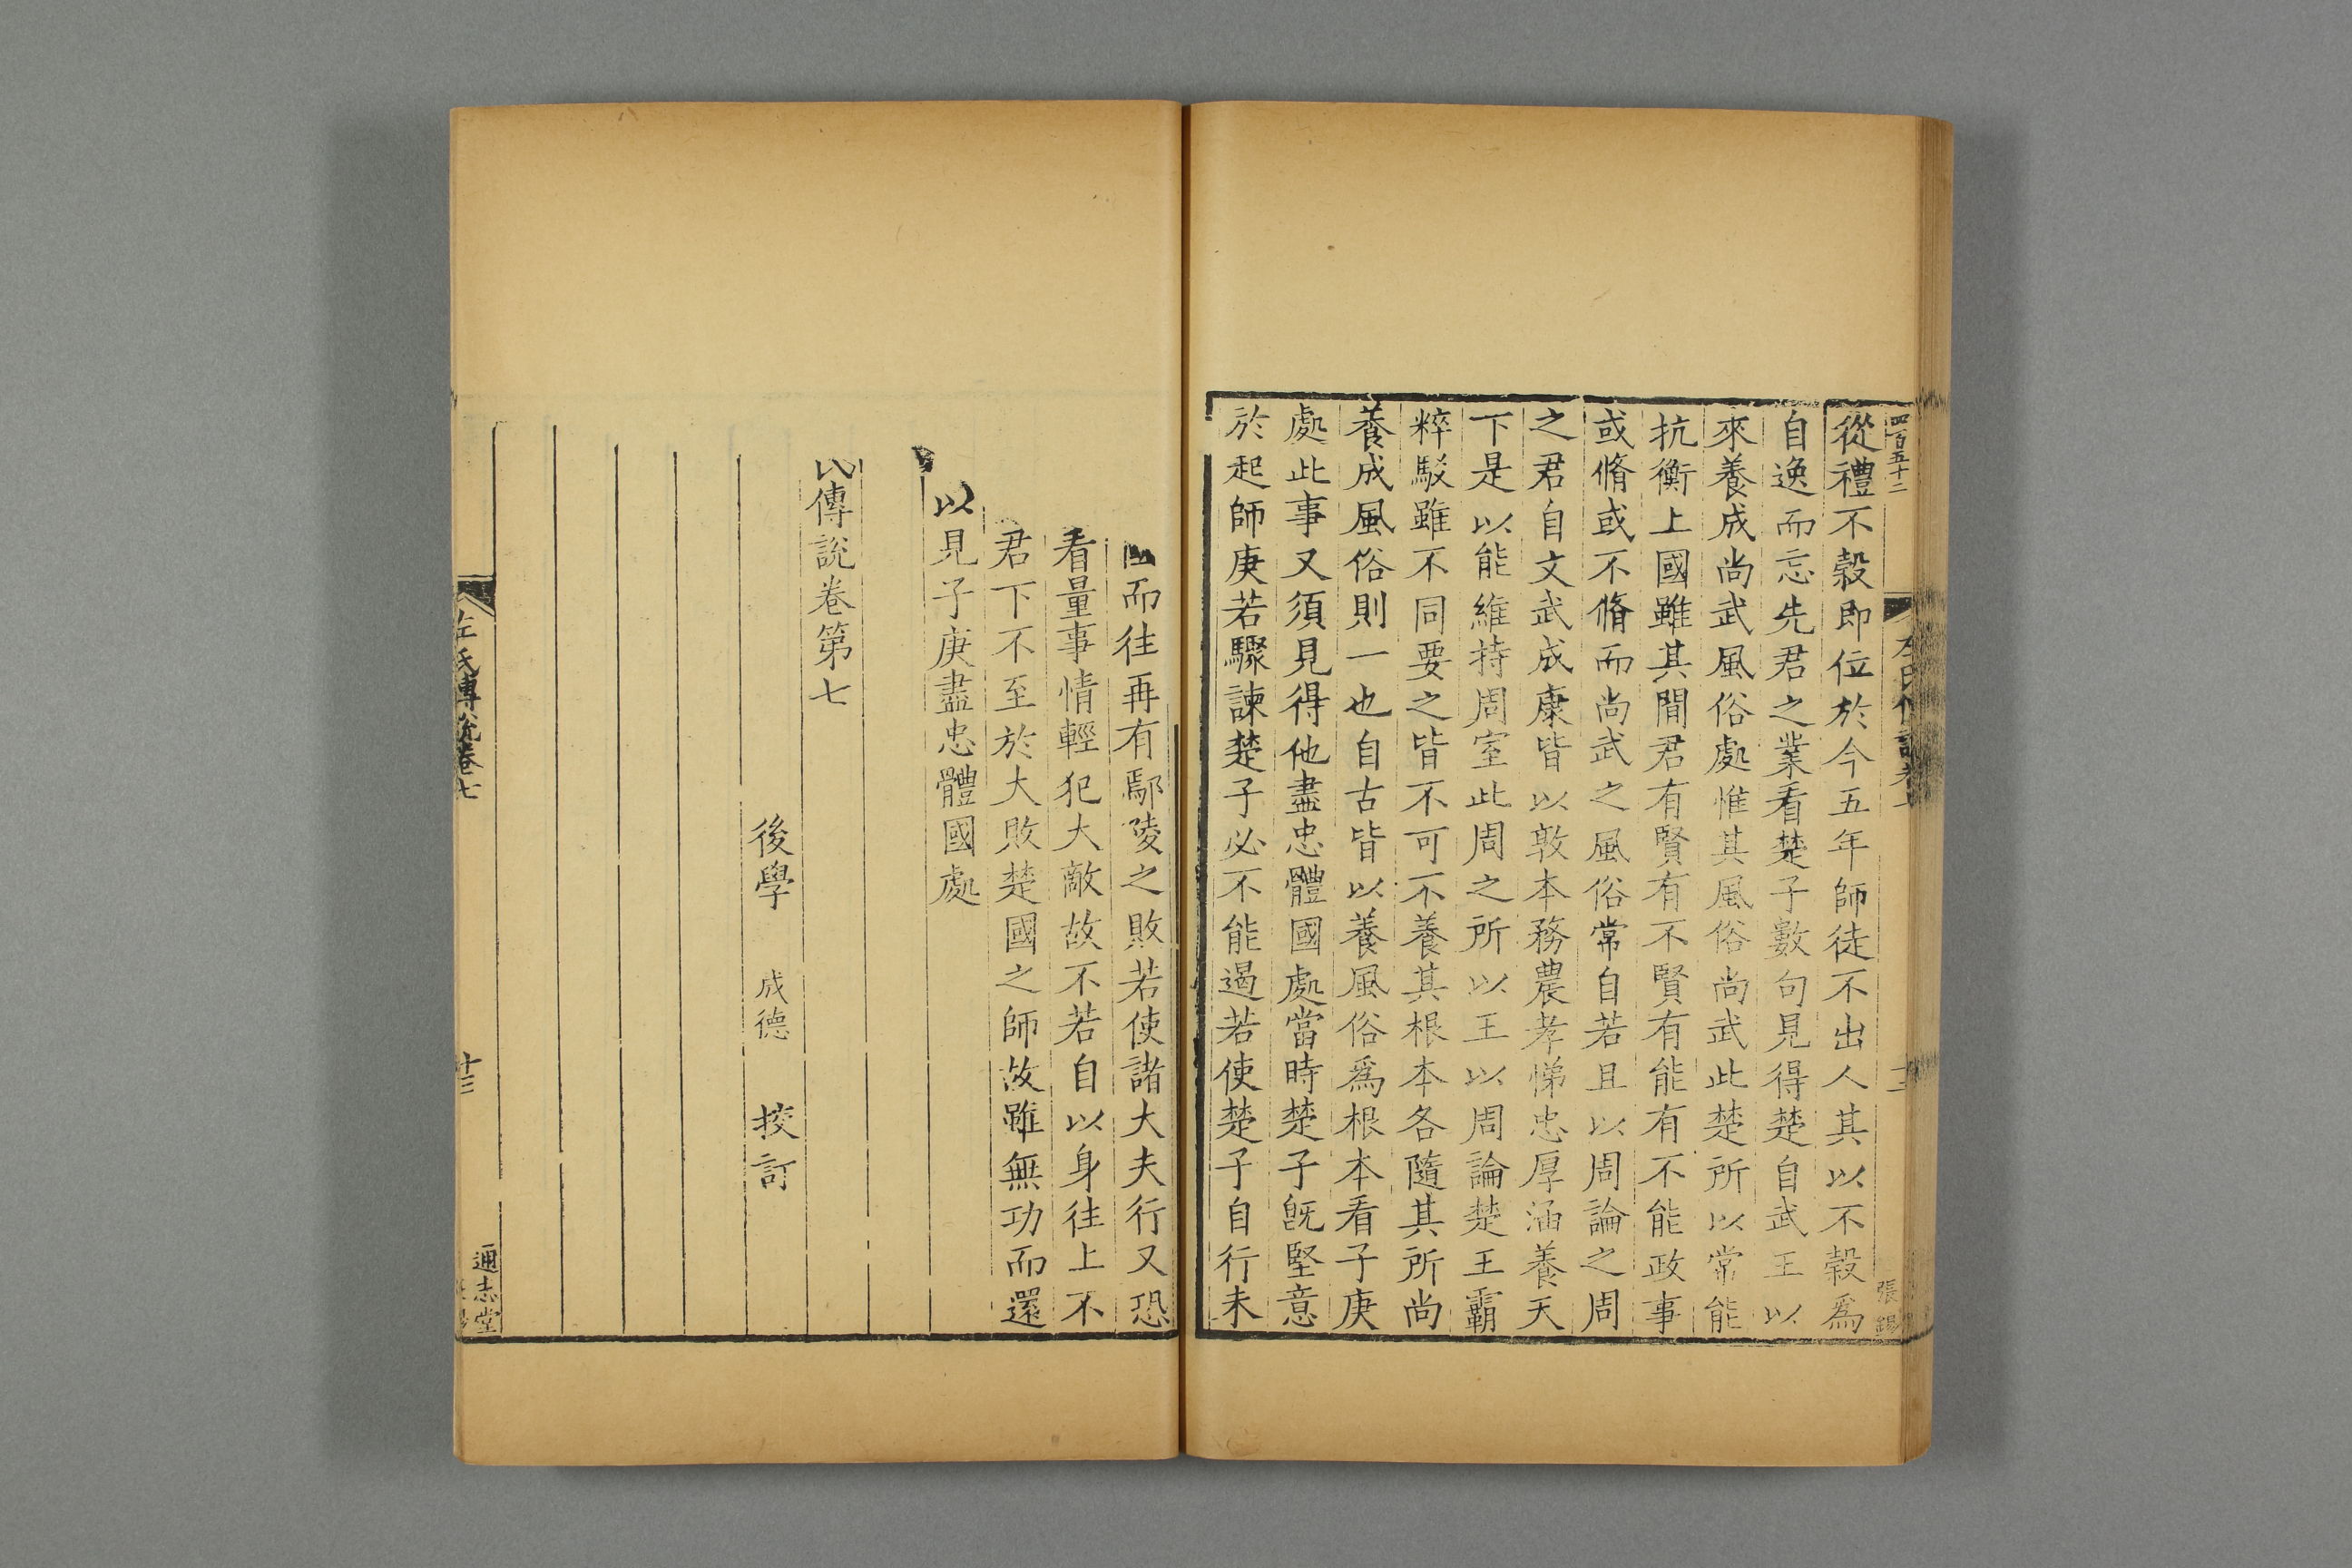 四百五十二
從禮不榖即位於今五年師徒不出人其以不榖爲
自逸而忘先君之業看楚子數句見得楚自武王以
來養成尚武風俗處惟其風俗尚武此楚所以常能
抗衡上國雖其閒君有賢有不賢有能有不能政事
或脩或不脩而尚武之風俗常自若且以周論之周
之君自文武成康皆以敦本務農孝悌忠厚涵養天
下是以能維持周室此周之所以王以周論楚王霸
粹駁雖不同要之皆不可不養其根本各隨其所尚
養成風俗則一也自古皆以養風俗爲根本看子庚
處此事又須見得他盡忠體國處當時楚子旣堅意
於起師庚若驟諫楚子必不能遏若使楚子自行未
而往再有鄢陵之敗若使諸大夫行又恐
看量事情輕犯大敵故不若自以身往上不
君下不至於大敗楚國之師故雖無功而還
以見子庚盡忠體國處
氏傳說卷第七
後學 成德 挍訂
左氏傳說卷七
十三
通志堂